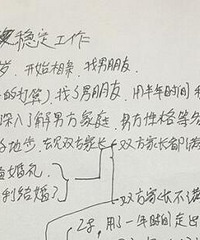 稳定工作
岁，开始相亲，找男朋友
的打算），找了男朋友，用半年时间
深入了解男方家庭，男方性格等
地步，去见双方家长
双方家长都满
婚礼
利结婚了
双方家长不满
用了一年时间走出